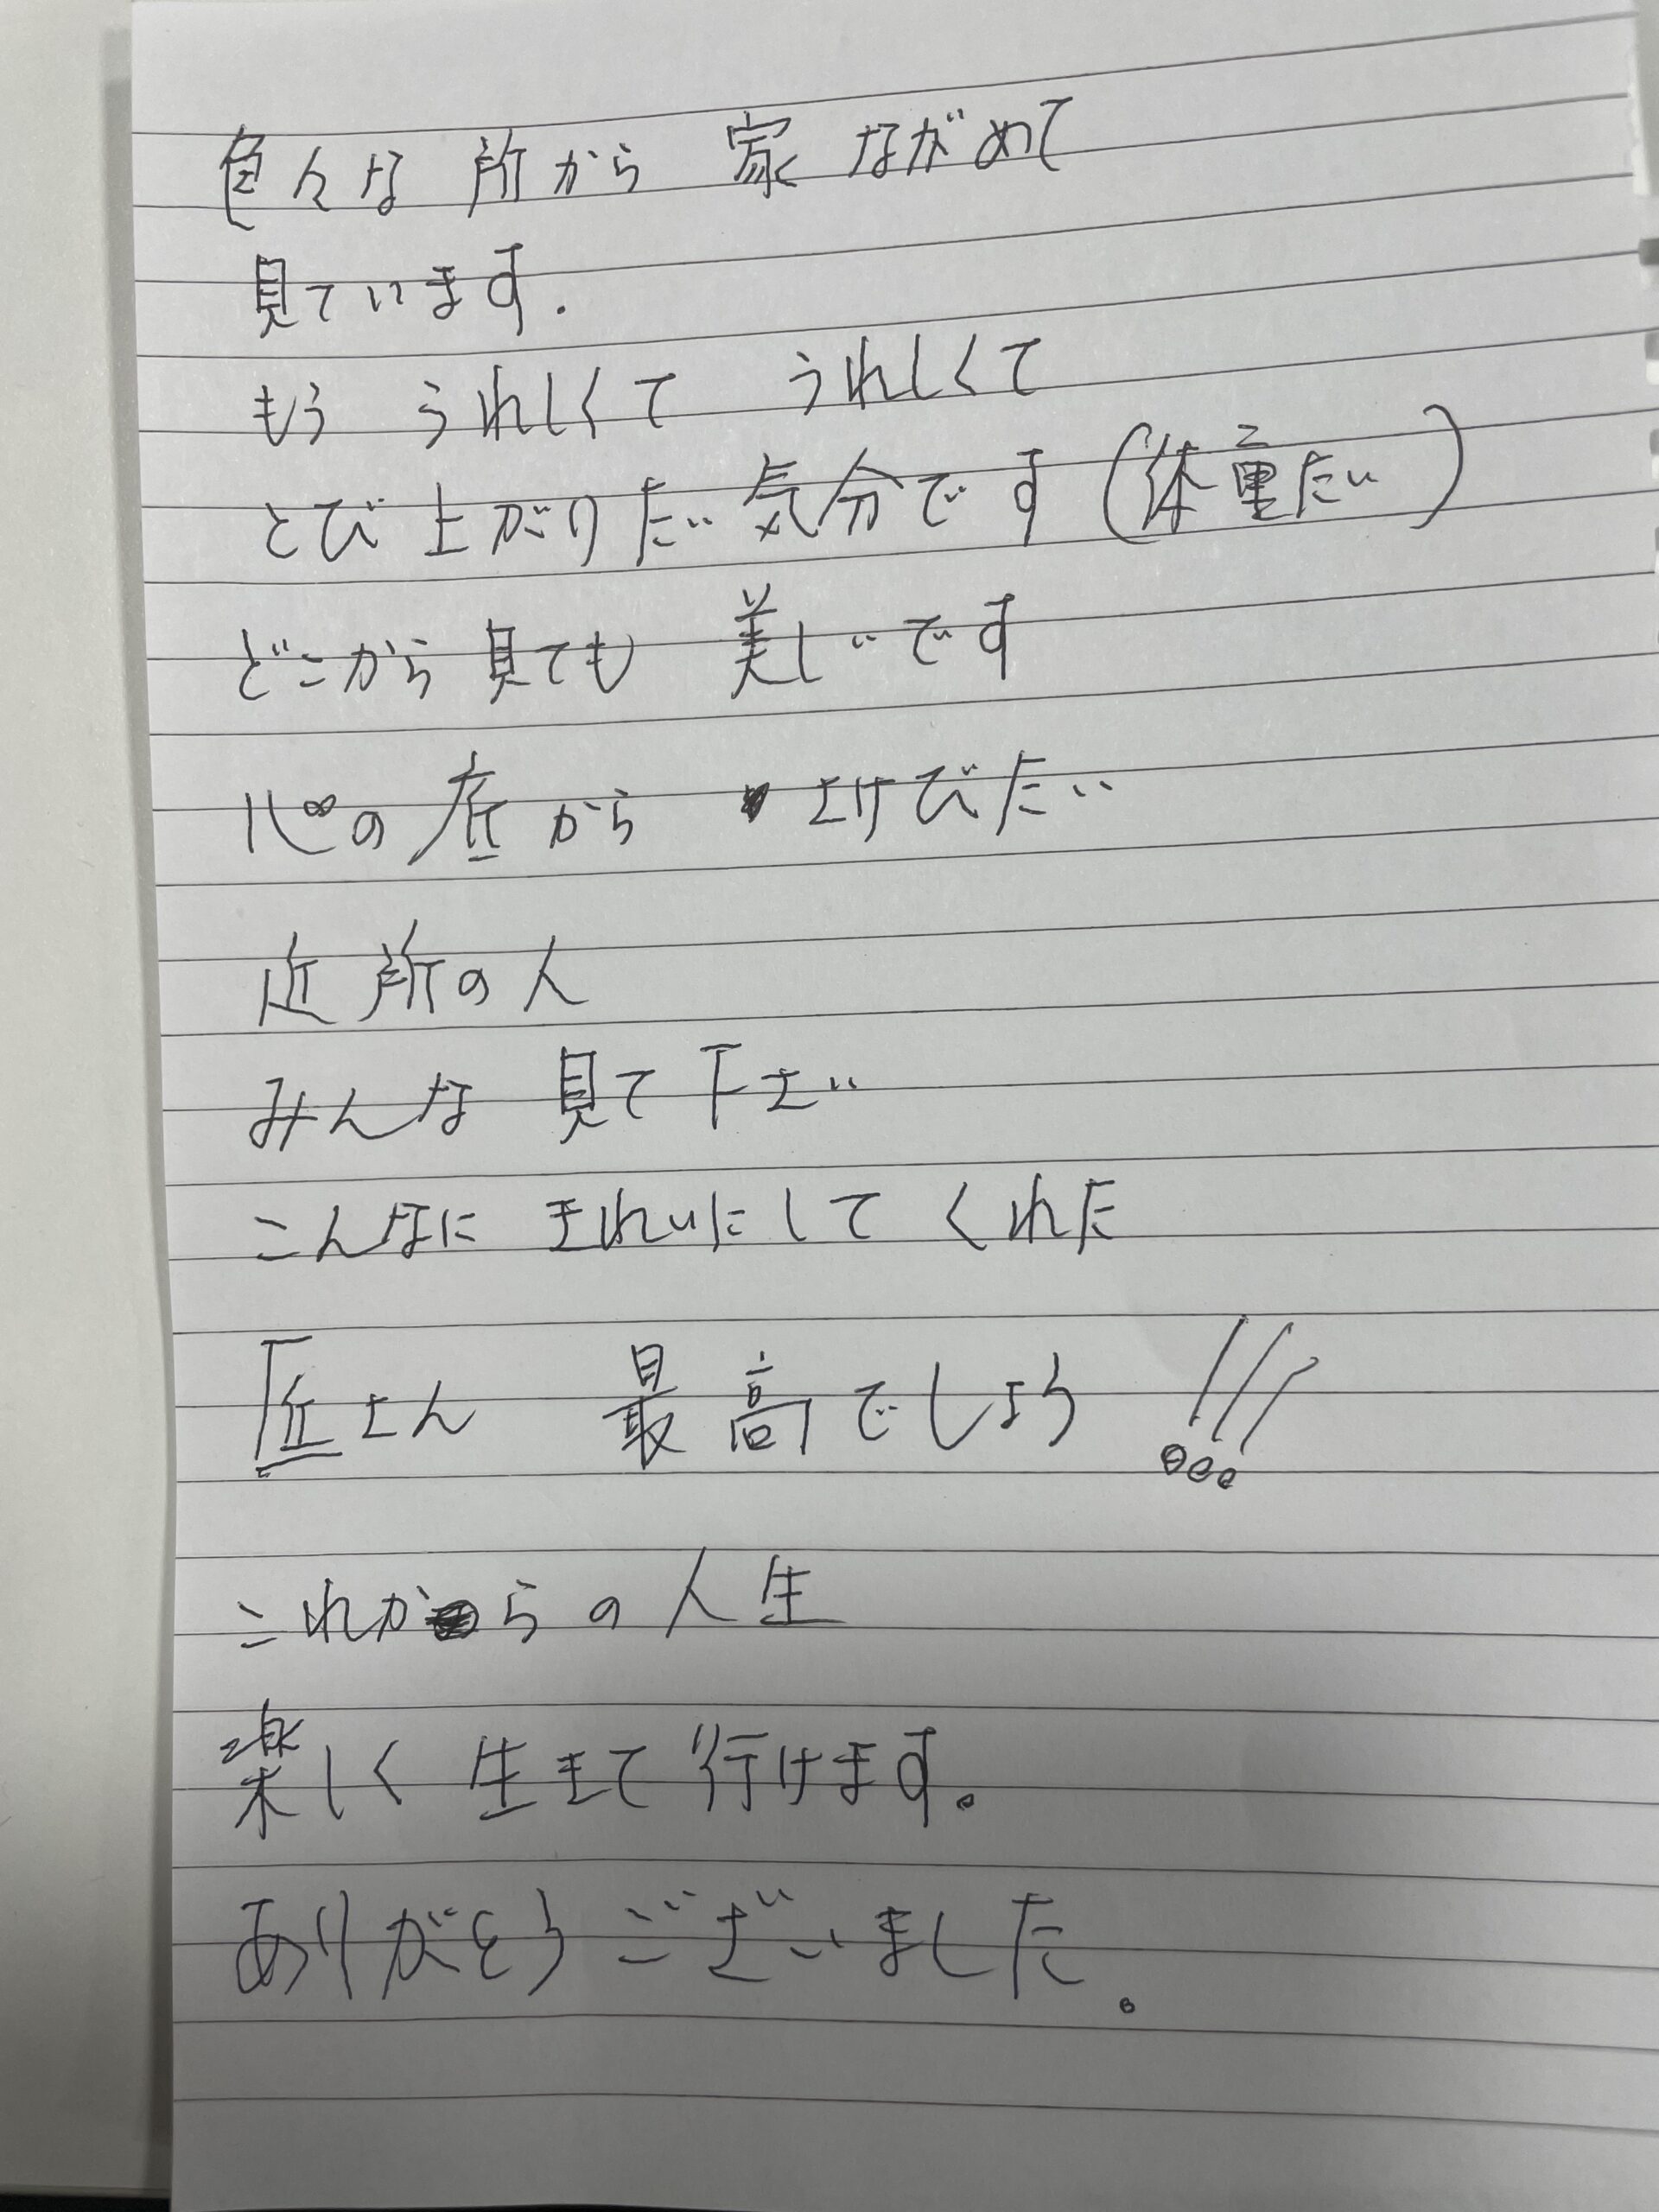 色々な所から 家 ながめて
見ています.
もう うれしくて うれしくて
とび上がりたい気分です(体重たい)
どこから見ても 美しいです
心の底から さけびたい
近所の人
みんな 見て下さい
こんなに きれいにして くれた
匠さん 最高でしょう!!!
これからの人生
楽しく 生きて行けます。
ありがとうございました。